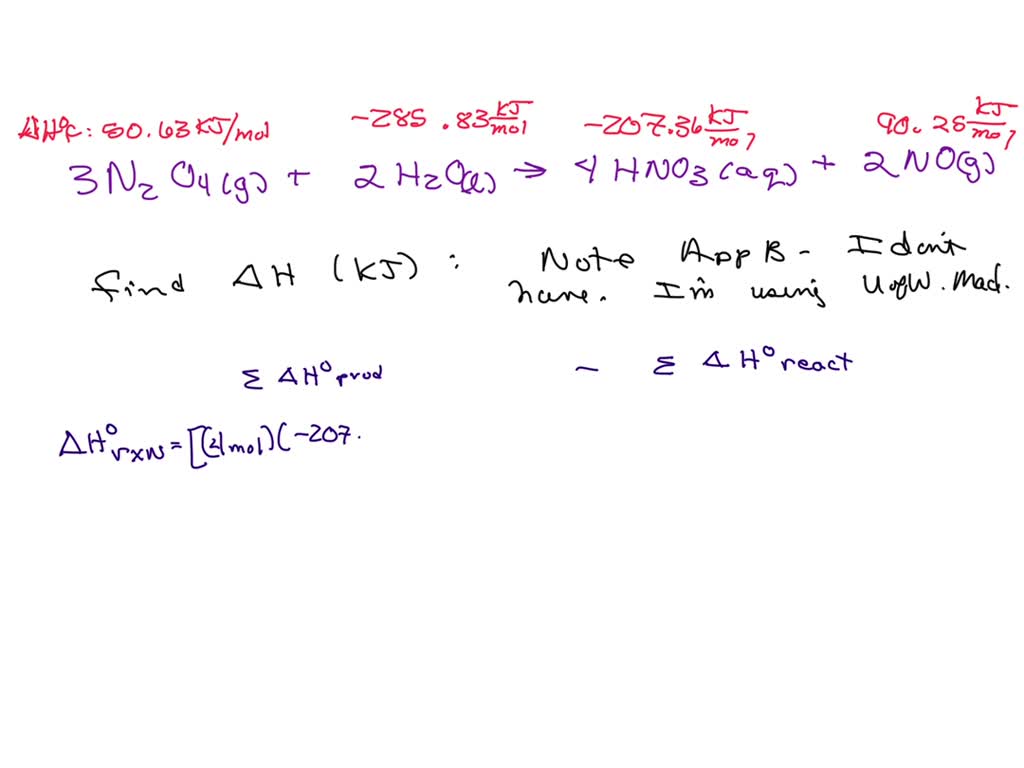 ΔH°f: 80.63 KJ/mol -285.83 KJ/mol -207.36 KJ/mol 90.25 KJ/mol
3N₂O₄(g) + 2H₂O(l) → 4HNO₃(aq) + 2NO(g)
Find ΔH (KJ) : Note App B - I don't
have. I'm using U of W. Mad.
Σ ΔH° prod - Σ ΔH° react
ΔH°rxn = [(4mol)(-207.